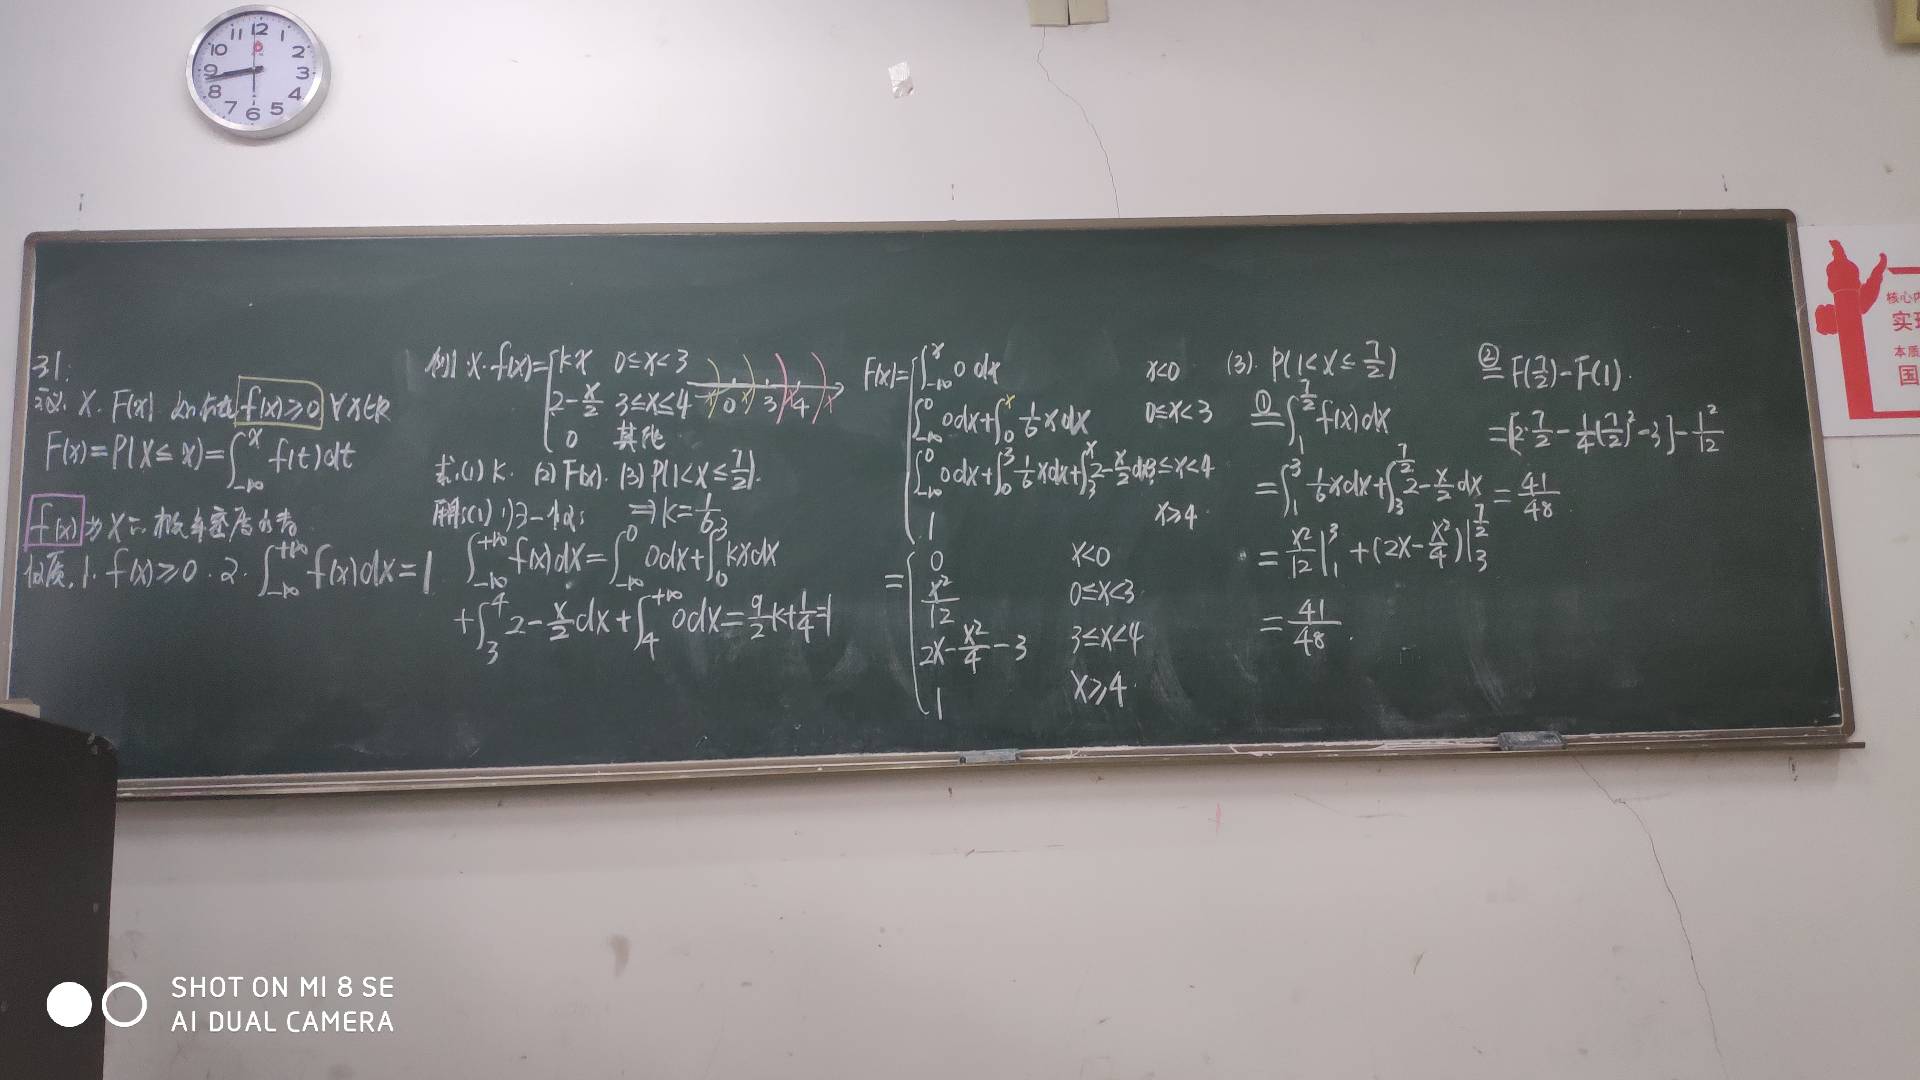 12 1 2 3 4 5 6 7 8 9 10 11
引:
定义. X. F(x). 如存在 f(x)≥0 ∀x∈R
F(x)=P(X≤x)=∫_{-∞}^{x} f(t)dt
f(x)为X的概率密度函数
性质. 1. f(x)≥0. 2. ∫_{-∞}^{+∞} f(x)dx=1
例1 X. f(x)={ kx 0≤x<3
2-x/2 3≤x≤4
0 其他
0 3 4
求:(1) k. (2) F(x). (3) P(1<X≤7/2).
解:(1) ⇒k=1/6
∫_{-∞}^{+∞} f(x)dx=∫_{-∞}^{0} 0dx+∫_{0}^{3} kxdx
+∫_{3}^{4} 2-x/2 dx+∫_{4}^{+∞} 0dx=9/2 k+1/4=1
F(x)={ ∫_{-∞}^{x} 0 dx x<0
∫_{-∞}^{0} 0dx+∫_{0}^{x} 1/6 xdx 0≤x<3
∫_{-∞}^{0} 0dx+∫_{0}^{3} 1/6 xdx+∫_{3}^{x} 2-x/2 dx 3≤x<4
1 x≥4
={ 0 x<0
x²/12 0≤x<3
2x-x²/4-3 3≤x<4
1 x≥4
(3). P(1<X≤7/2)
①=∫_{1}^{7/2} f(x)dx
=∫_{1}^{3} 1/6 xdx+∫_{3}^{7/2} 2-x/2 dx
=x²/12|_{1}^{3}+(2x-x²/4)|_{3}^{7/2}
=41/48.
②=F(7/2)-F(1).
=[2·7/2-1/4(7/2)²-3]-1²/12
=41/48
核心内
实现
本质
国
SHOT ON MI 8 SE
AI DUAL CAMERA